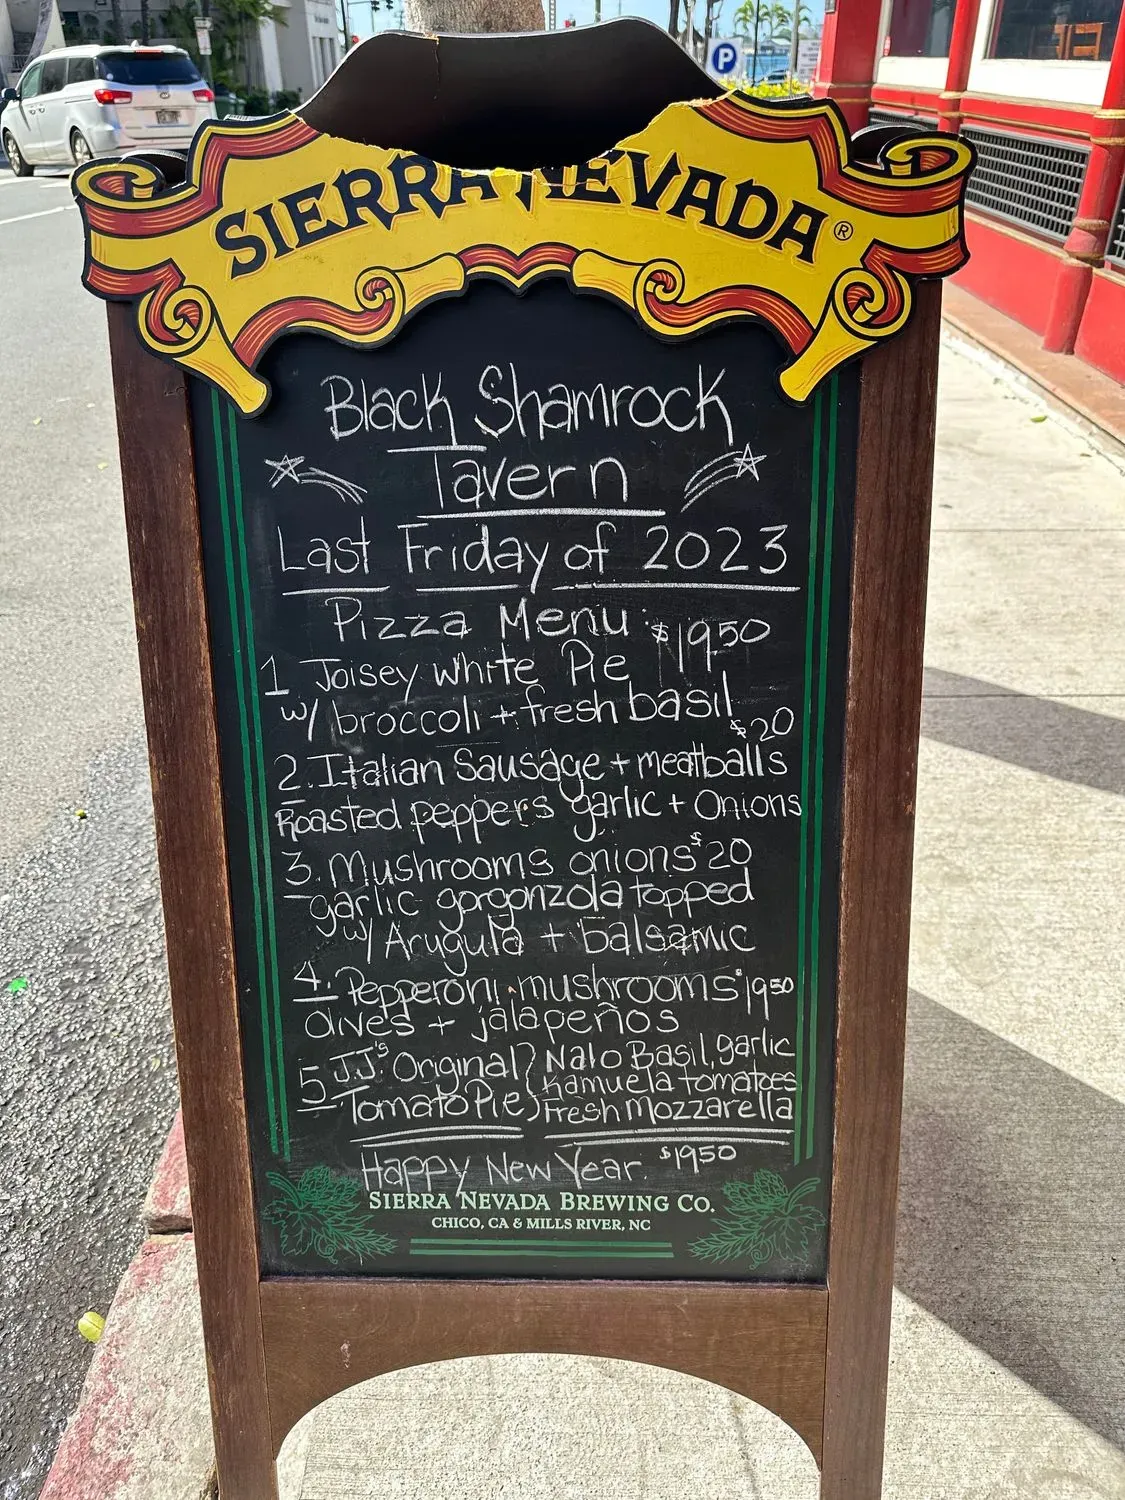 P
SIERRA NEVADA®
Black Shamrock
Tavern
Last Friday of 2023
Pizza Menu: $1950
1 Joisey white Pie
w/ broccoli + fresh basil
$20
2. Italian Sausage + meatballs
Roasted peppers garlic + Onions
3. Mushrooms onions $20
garlic gorgonzola topped
w/ Arugula + balsamic
4. Pepperoni mushrooms $1950
olives + jalapeños
5 JJ's Original Nalo Basil, garlic
Tomato Pie Kamuela tomatoes
Fresh Mozzarella
Happy New Year. $1950
SIERRA NEVADA BREWING CO.
CHICO, CA & MILLS RIVER, NC